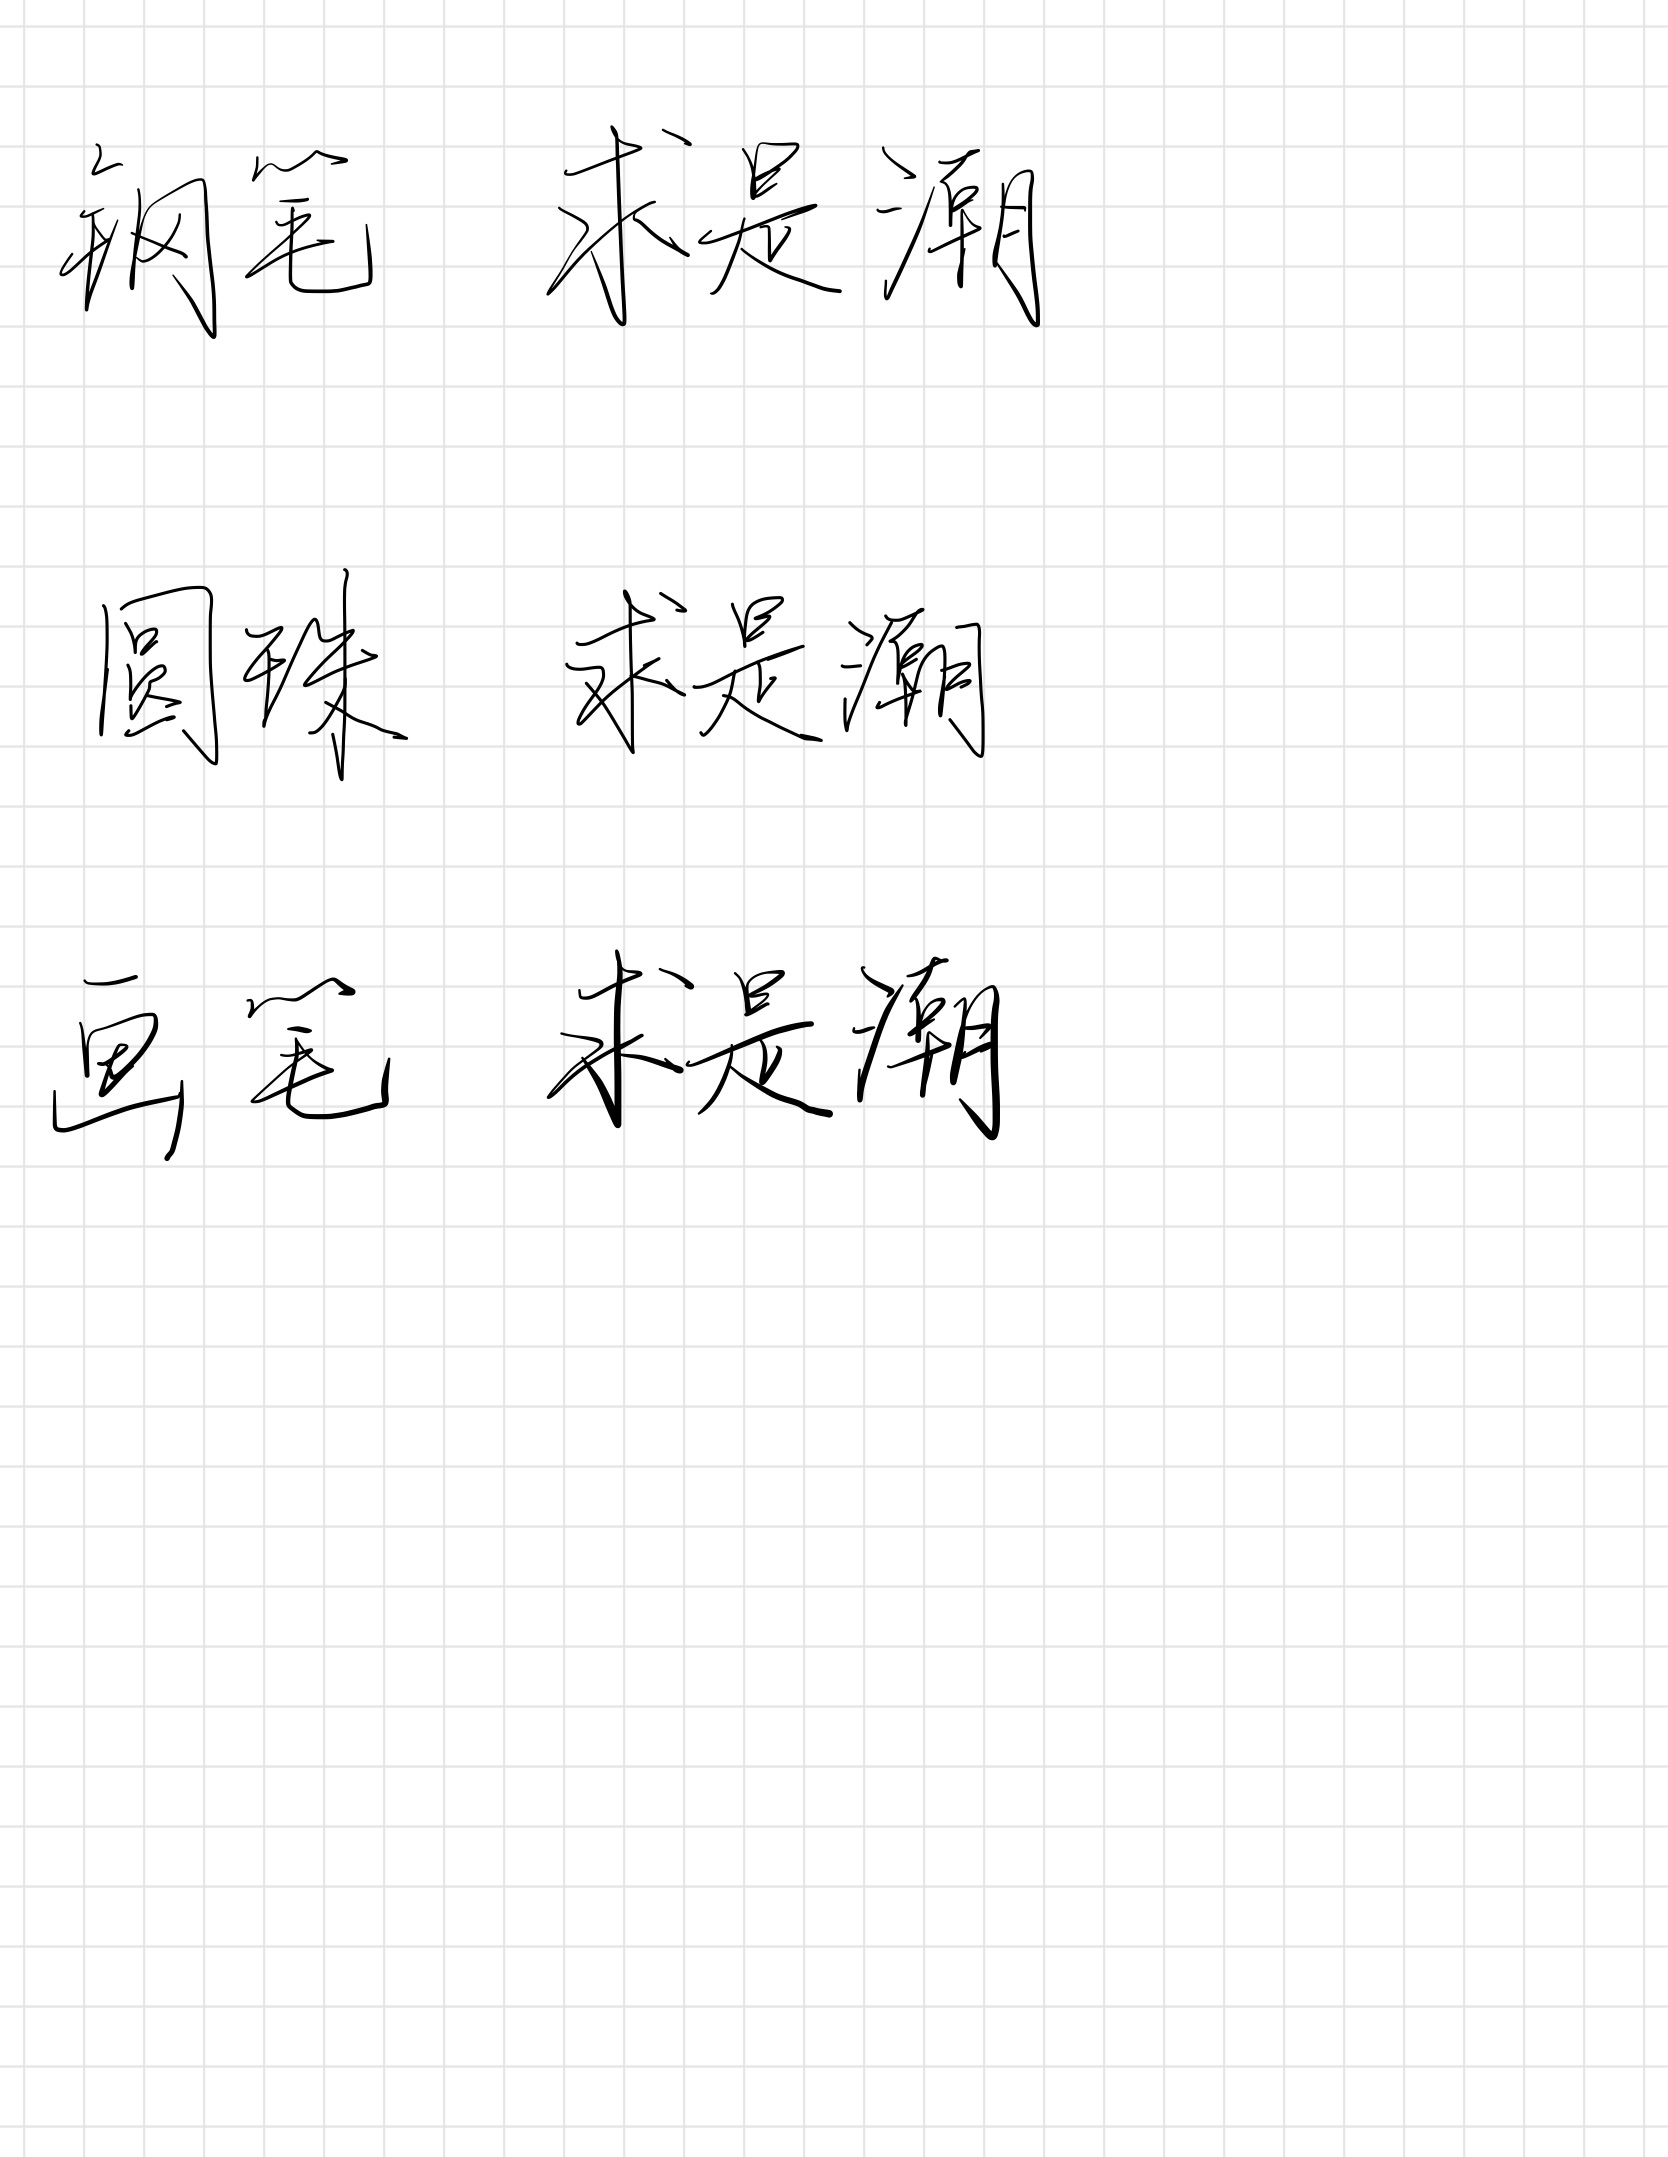 钢笔 求是潮
圆珠 求是潮
画笔 求是潮